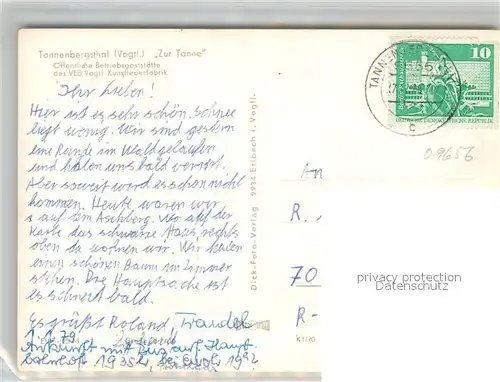 Tannenbergsthal (Vogtl.) „Zur Tanne"
Öffentliche Betriebsgaststätte
des VEB Vogtl. Kunstlederfabrik
Ihr Lieben!
Hier ist es sehr schön. Schnee
liegt wenig. Wir sind gestern
eine Runde im Wald gelaufen
und haben uns bald verirrt.
Aber soweit wird es schon nicht
kommen. Heute waren wir
auf dem Aschberg. Wo auf der
Karte das schwarze Haus, rechts
oben da wohnen wir. Wir haben
einen schönen Baum im Zimmer
stehen. Die Hauptsache ist
es schneit bald.
Es grüßt Roland, Traudel
1.1.79
Ankunft mit Bus auf Haupt-
bahnhof
Dick-Foto-Verlag 9934 Erlbach i. Vogtl.
TANNENBER
c
10
DEUTSCHE DEMOKRATISCHE REPUBLIK
09656
An
R.
70
R-
privacy protection
Datenschutz